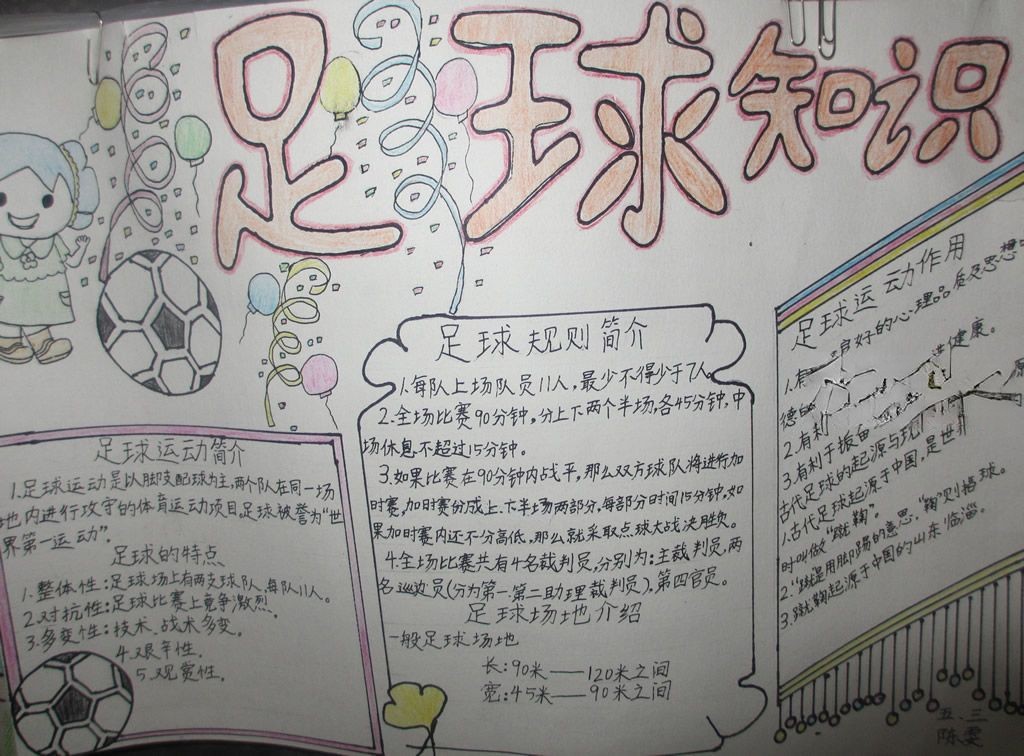 足球知识
足球运动简介
1.足球运动是以脚支配球为主,两个队在同一场
地内进行攻守的体育运动项目足球被誉为“世
界第一运动”。
足球的特点
1.整体性:足球场上有两支球队,每队11人。
2.对抗性:足球比赛上竞争激烈.
3.多变性:技术.战术多变。
4.艰辛性.
5.观赏性.
足球规则简介
1.每队上场队员11人,最少不得少于7人
2.全场比赛90分钟,分上下两个半场,各45分钟,中
场休息不超过15分钟。
3.如果比赛在90分钟内战平,那么双方球队将进行加
时赛,加时赛份成上.下半场两部分,每部分时间15分钟,如
果加时赛内还不分高低,那么就采取点球大战决胜负。
4.全场比赛共有4名裁判员,分别为:主裁判员,两
名巡边员(分为第一.第二助理裁判员).第四官员。
足球场地介绍
一般足球场地
长:90米——120米之间
宽:45米——90米之间
足球运动作用
好的心理品质及思想
德
健康。
2.有利
3.有利于振奋
古代足球的起源与现
1.古代足球起源于中国,是世
时叫做“蹴鞠”。
2.“蹴”是用脚踢的意思,“鞠”则指球。
3.蹴鞠起源于中国的山东临淄。
五.三
陈雯